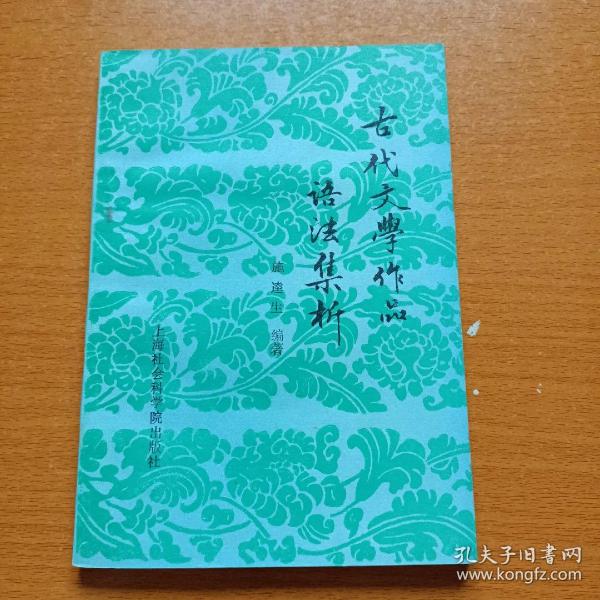 古代文學作品
语法集析
施逢生 编著
上海社会科学院出版社
孔夫子旧書网
www.kongfz.com